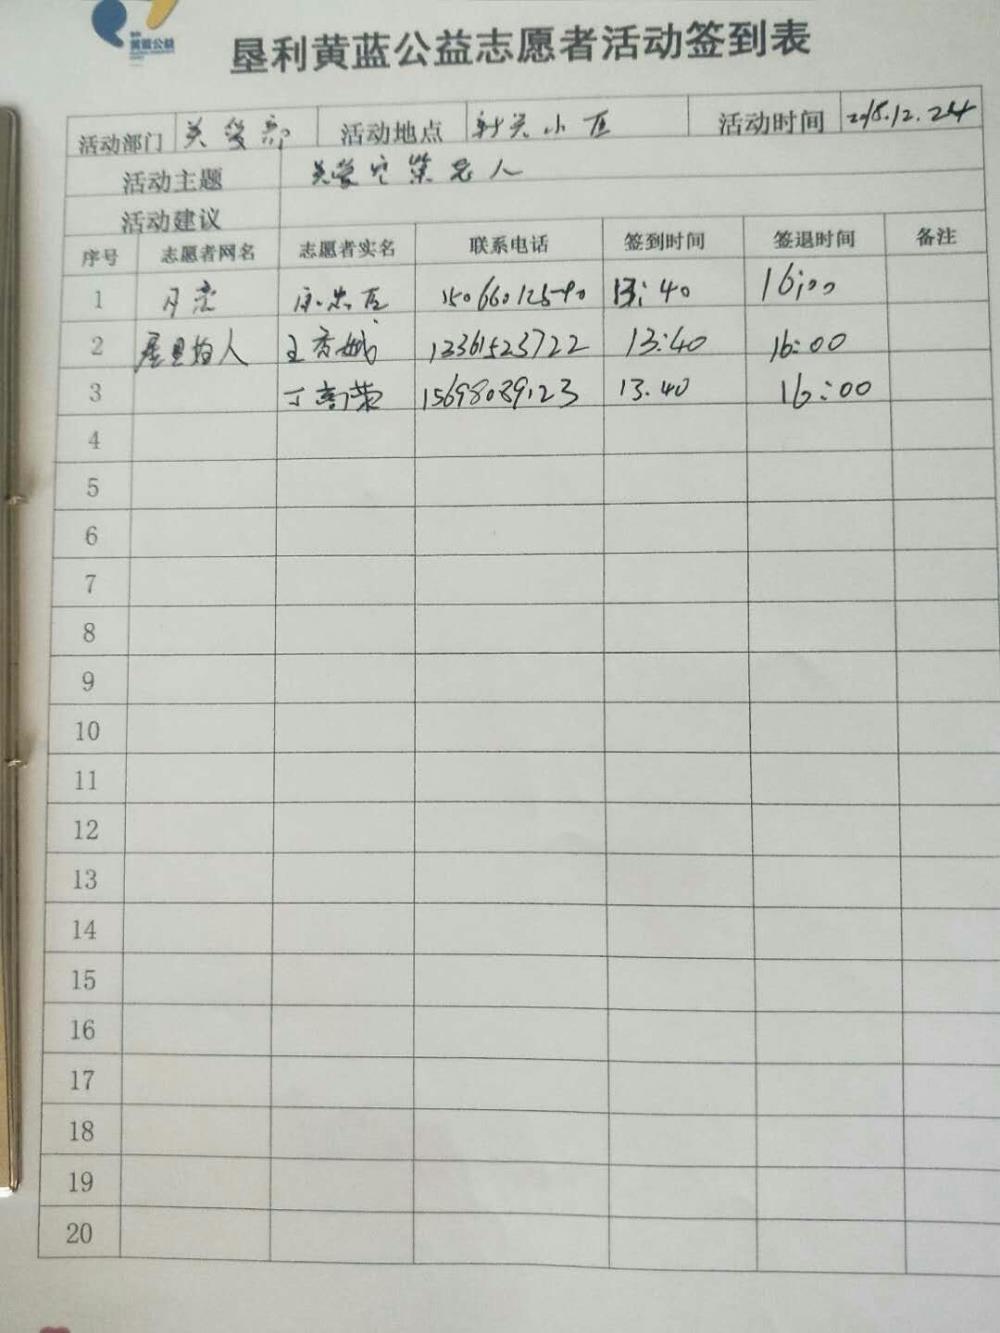 黄蓝公益
垦利黄蓝公益志愿者活动签到表
活动部门 关爱部 活动地点 新兴小区 活动时间 2018.12.24
活动主题 关爱空巢老人
活动建议
序号 志愿者网名 志愿者实名 联系电话 签到时间 签退时间 备注
1 13:40 16:00
2 王秀娥 13361523722 13:40 16:00
3 15698089123 13.40 16:00
4
5
6
7
8
9
10
11
12
13
14
15
16
17
18
19
20